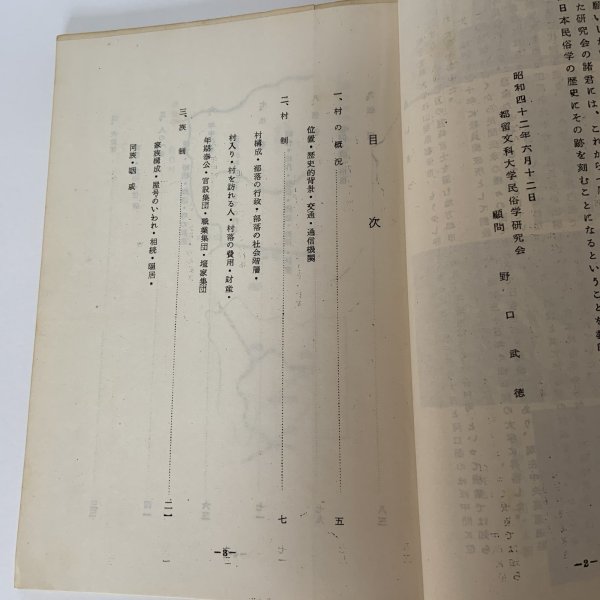 願いし
た研究会の諸君には、これから
日本民俗学の歴史にその跡を刻むことになるということを
昭和四十二年六月十二日
都留文科大学民俗学研究会
顧問　野口武徳
—2—
目次
一、村の概況…………五
位置・歴史的背景・交通・通信機関
二、村制…………七
村構成・部落の行政・部落の社会階層・
村入り・村を訪れる人・村落の費用・財産・
年期奉公・官設集団・職業集団・壇家集団
三、族制…………二一
家族構成・屋号のいわれ・相続・隠居・
同族・姻戚
—3—